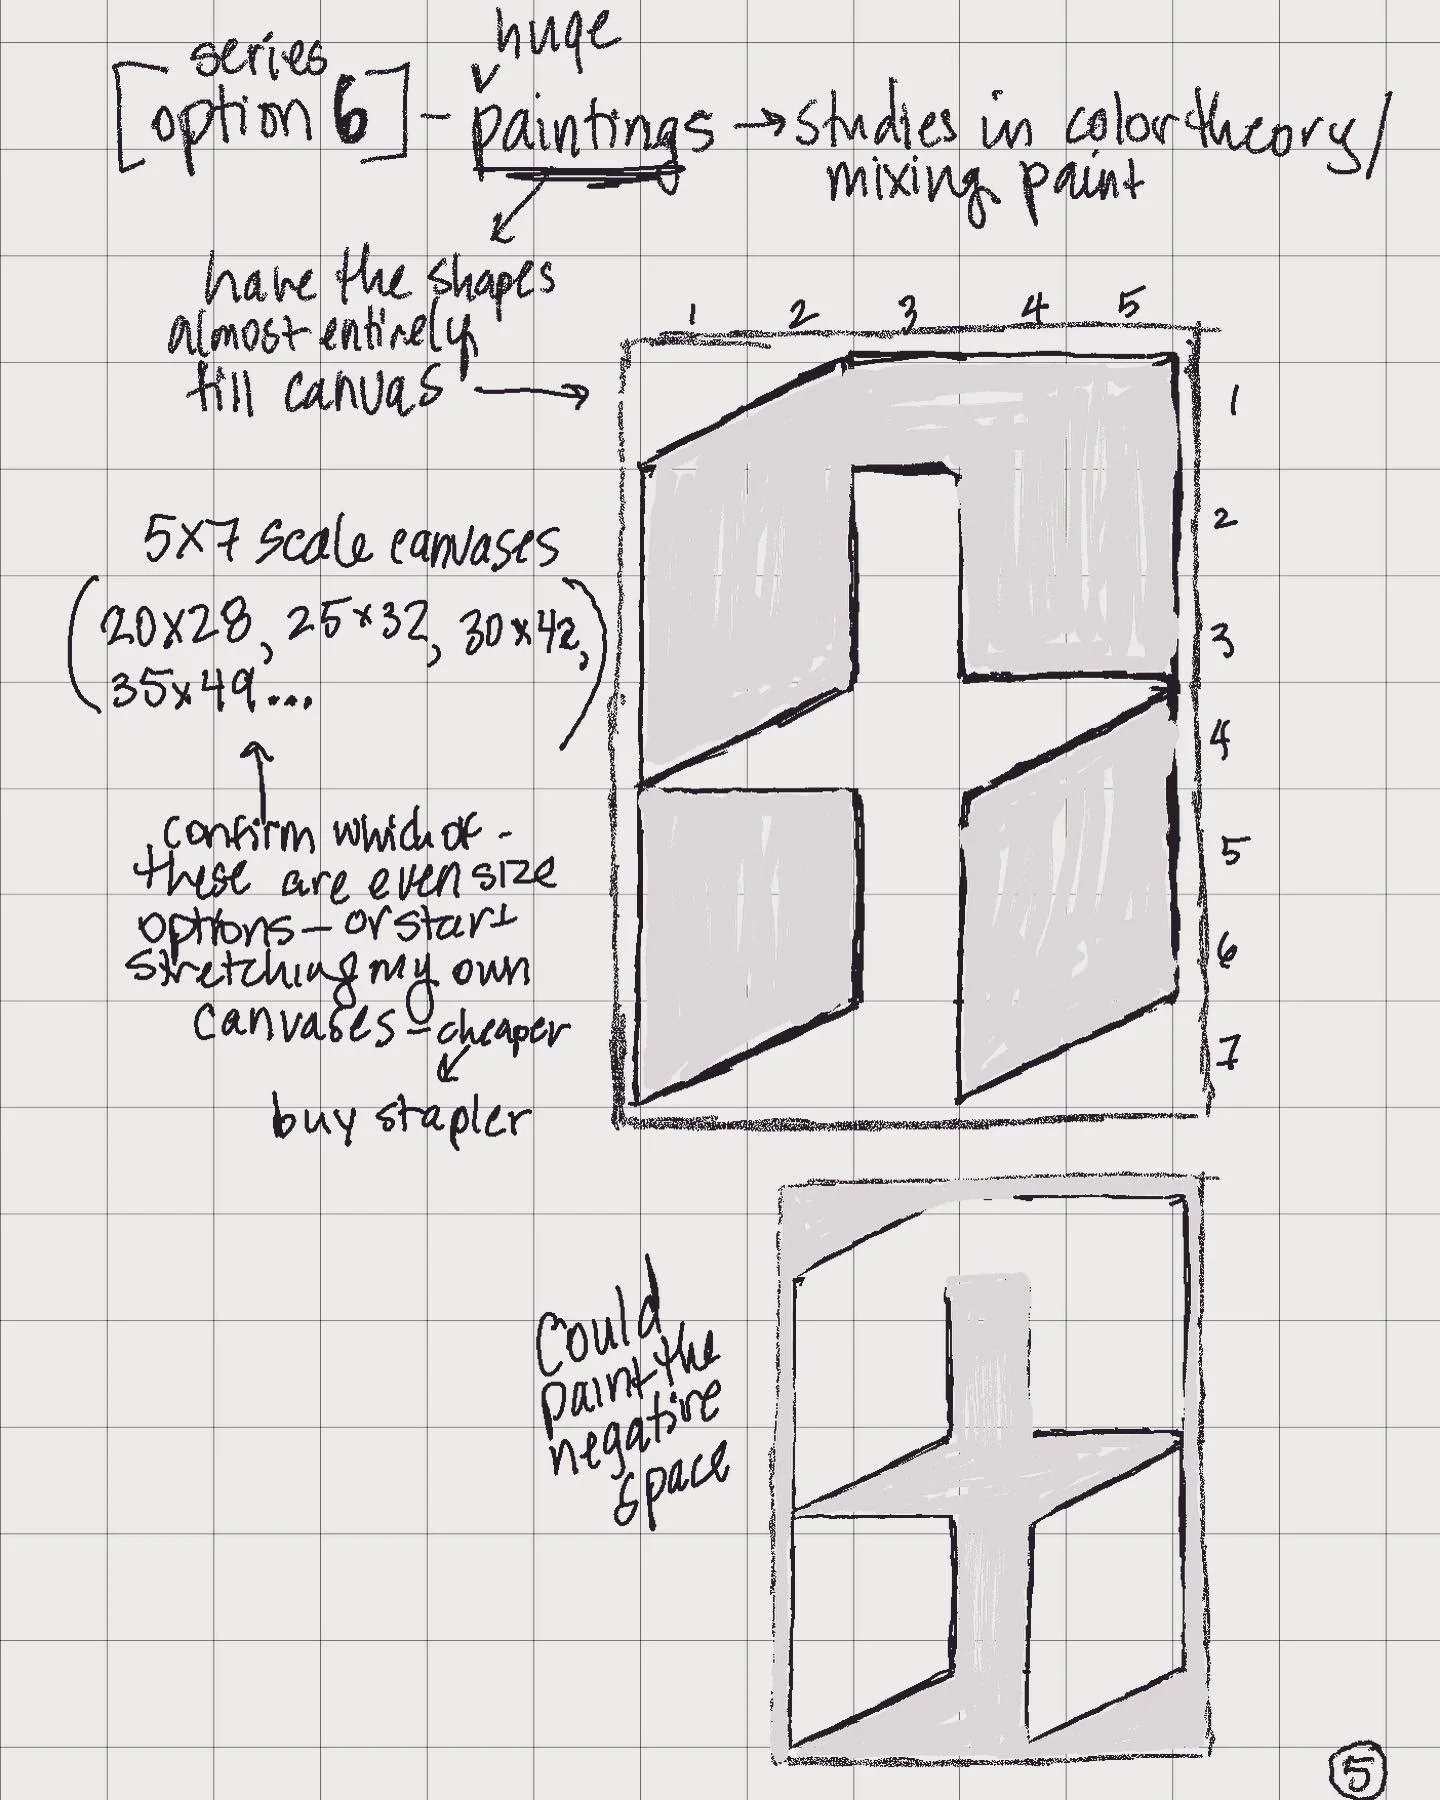 series
[option 6] - huge paintings → studies in color theory/
mixing paint
have the shapes
almost entirely
fill canvas →
1 2 3 4 5
1
2
3
4
5
6
7
5x7 scale canvases
(20x28, 25x32, 30x42,
35x49...)
confirm which of -
these are even size
options - or start
stretching my own
canvases - cheaper
buy stapler
Could
paint the
negative
space
5